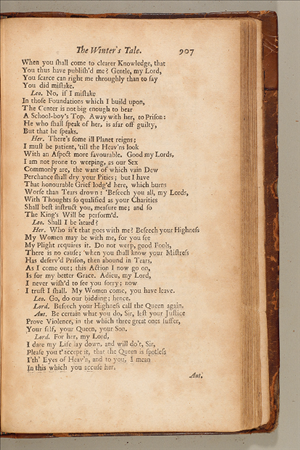 The Winter's Tale. 907
When you ſhall come to clearer Knowledge, that
You thus have publiſh'd me? Gentle, my Lord,
You ſcarce can right me throughly than to ſay
You did miſtake.
Leo. No, if I miſtake
In thoſe Foundations which I build upon,
The Center is not big enough to bear
A School-boy's Top. Away with her, to Priſon:
He who ſhall ſpeak of her, is afar off guilty,
But that he ſpeaks.
Her. There's ſome ill Planet reigns;
I muſt be patient, 'till the Heav'ns look
With an Aſpect more favourable. Good my Lords,
I am not prone to weeping, as our Sex
Commonly are, the want of which vain Dew
Perchance ſhall dry your Pities; but I have
That honourable Grief lodg'd here, which burns
Worſe than Tears drown: 'Beſeech you all, my Lords,
With Thoughts ſo qualified as your Charities
Shall beſt inſtruct you, meaſure me; and ſo
The King's Will be perform'd.
Leo. Shall I be heard?
Her. Who is't that goes with me? Beſeech your Highneſs
My Women may be with me, for you ſee
My Plight requires it. Do not weep, good Fools,
There is no cauſe; when you ſhall know your Miſtreſs
Has deſerv'd Priſon, then abound in Tears,
As I come out; this Action I now go on,
Is for my better Grace. Adieu, my Lord,
I never wiſh'd to ſee you ſorry; now
I truſt I ſhall. My Women come, you have leave.
Leo. Go, do our bidding; hence.
Lord. Beſeech your Highneſs call the Queen again.
Ant. Be certain what you do, Sir, leſt your Juſtice
Prove Violence, in the which three great ones ſuffer,
Your ſelf, your Queen, your Son.
Lord. For her, my Lord,
I dare my Life lay down, and will do't, Sir,
Pleaſe you t'accept it, that the Queen is ſpotleſs
I'th' Eyes of Heav'n, and to you, I mean
In this which you accuſe her.
Ant.